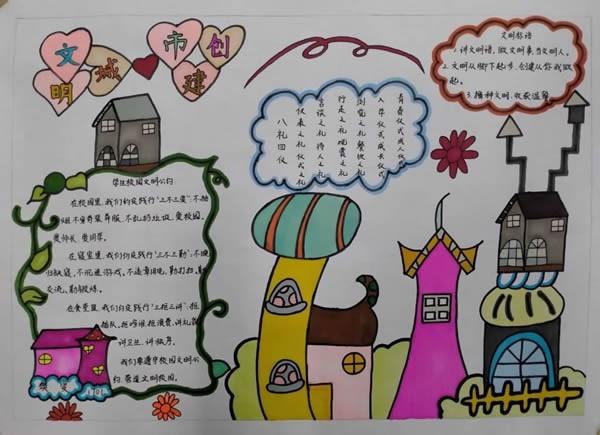 创建
文明
城市
文明标语
1.讲文明语,做文明事,当文明人。
2.文明从脚下起步,创建从你我做
起。
3.播种文明,收获温馨
八礼四仪
仪表之礼 仪式之礼
言谈之礼 待人之礼
行走之礼 观赏之礼
游览之礼 餐饮之礼
入学仪式 成长仪式
青春仪式 成人仪式
学生校园文明公约
在校园里,我们约定践行“三不三爱”:不抽
烟、不穿奇装异服、不乱扔垃圾,爱校园、
爱师长、爱同学。
在寝室里,我们约定践行“三不三勤”:不晚
归就寝、不沉迷游戏、不违章用电,勤打扫、勤
交流、勤锻炼。
在食堂里,我们约定践行“三拒三讲”:拒
插队、拒喧哗、拒浪费,讲礼貌、
讲卫生、讲秩序。
我们要遵守校园文明公
约,营造文明校园。